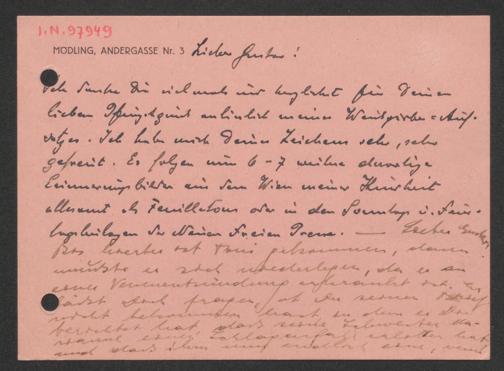 I.N. 97949
MÖDLING, ANDERGASSE Nr. 3 Lieber Gustav!
Ich danke Dir vielmals und herzlichst für Deinen
lieben Pfingstgruß anläßlich meines Auf-
satzes. Ich habe mich Deines Zeichens sehr, sehr
gefreut. Es folgen nun 6-7 weitere derartige
Erinnerungsbilder aus dem Wien meiner Kindheit
allesamt als Feuilletons oder in den Sonntag- u. Feier-
tagsbeilagen der Neuen Freien Presse. — Lieber Gustav,
gekommen, dann
mußte er sich niederlegen, da er an
einer Venenentzündung erkrankt ist. Er
läßt Dich fragen, ob Du seinen Brief
nicht bekommen hast, in dem er Dir
berichtet hat, daß seine Schwester
einen Schlaganfall erlitten hat
und daß ihm nun